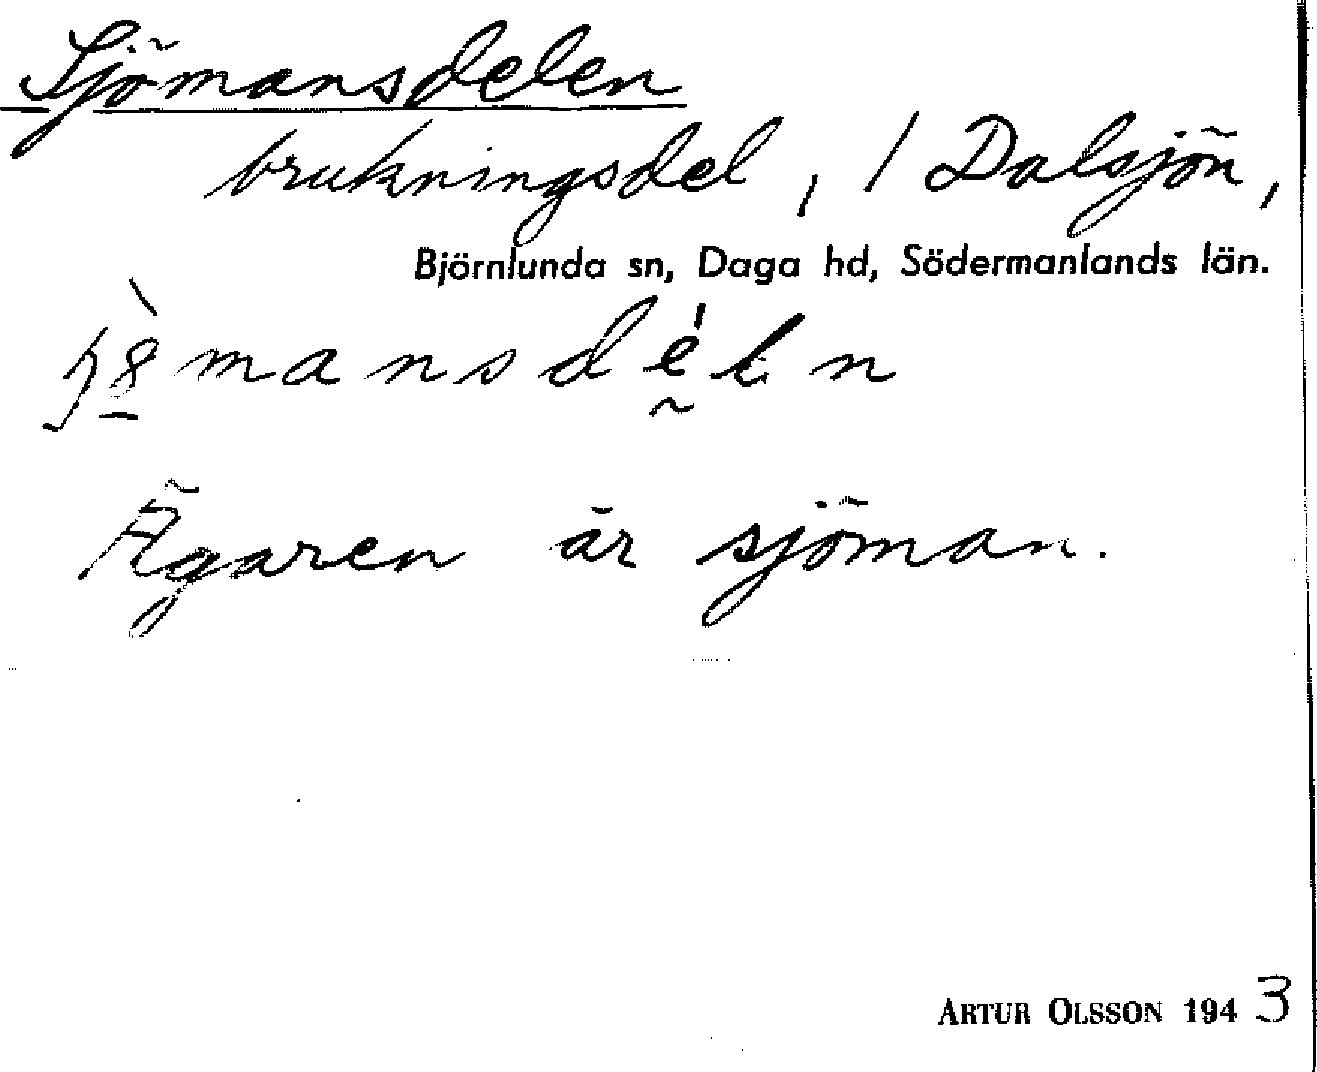 Sjömansdelen
brukningsdel, / Dalsjön,
Björnlunda sn, Daga hd, Södermanlands län.
Ägaren är sjöman.
ARTUR OLSSON 1943